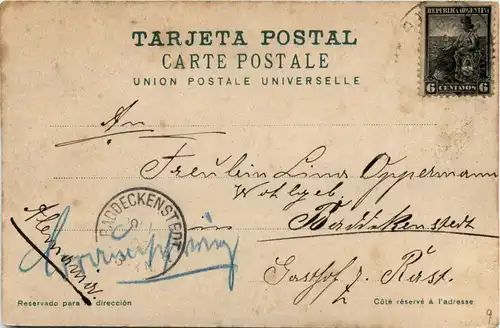 TARJETA POSTAL
CARTE POSTALE
UNION POSTALE UNIVERSELLE
REPUBLICA ARGENTINA
6 CENTAVOS 6
An
Fräulein Lina Oppermann
Wohlgeb.
in Baddekenstedt
Gasthof z. Rast.
Alemania
BADDECKENSTEDT
Reservado para la dirección
Côté réservé à l'adresse
9